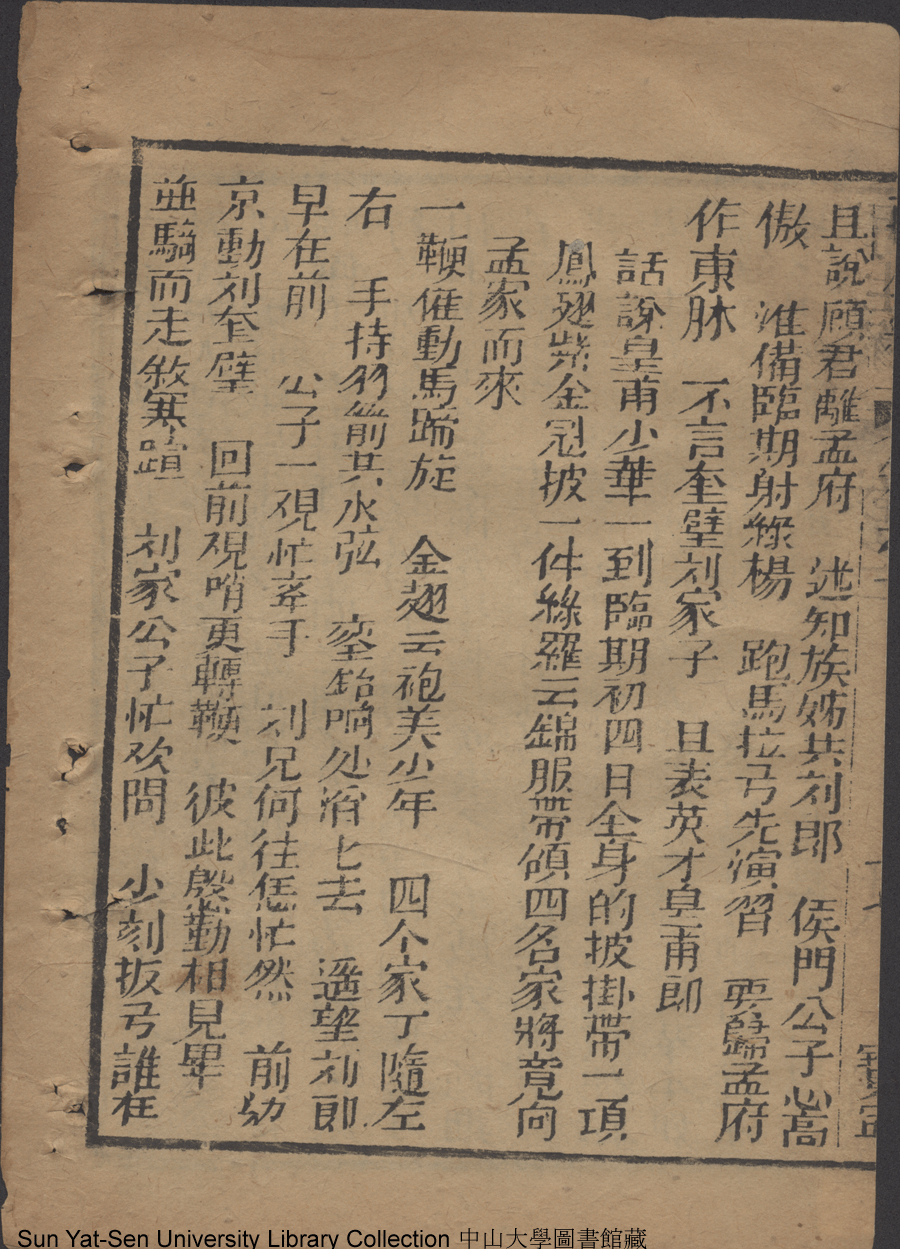 且說顧君離孟府　述知族姊共刘郎　侯門公子心高
傲　准備臨期射綠楊　跑馬拉弓先演習　要歸孟府
作東床　不言奎璧刘家子　且表英才皇甫郎
話說皇甫少華一到臨期初四日全身的披掛帶一項
鳳翅紫金冠披一件絲羅云錦服帶領四名家將竟向
孟家而來
一鞭催動馬蹄旋　金翅云袍美少年　四个家丁隨左
右　手持羽箭共氷弦　鑾鈴响处滔七去　遥望刘郎
早在前　公子一覌忙牽手　刘兄何往恁忙然　前幼
京動刘奎璧　回前覌哨更轉鞭　彼此慇勤相見畢
並騎而走敘寒諠　刘家公子忙欢問　少刻扳弓誰在
Sun Yat-Sen University Library Collection 中山大學圖書館藏